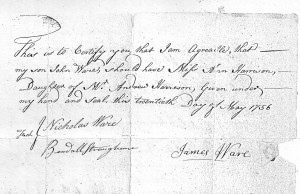 This is to Certify you that I am Agreable, that
my son John Ware, should have Miss Ann Harrison,
Daughter of Mr. Andrew Harrison, Given under
my hand and Seal this twentieth Day of May 1756
Nicholas Ware
James Ware